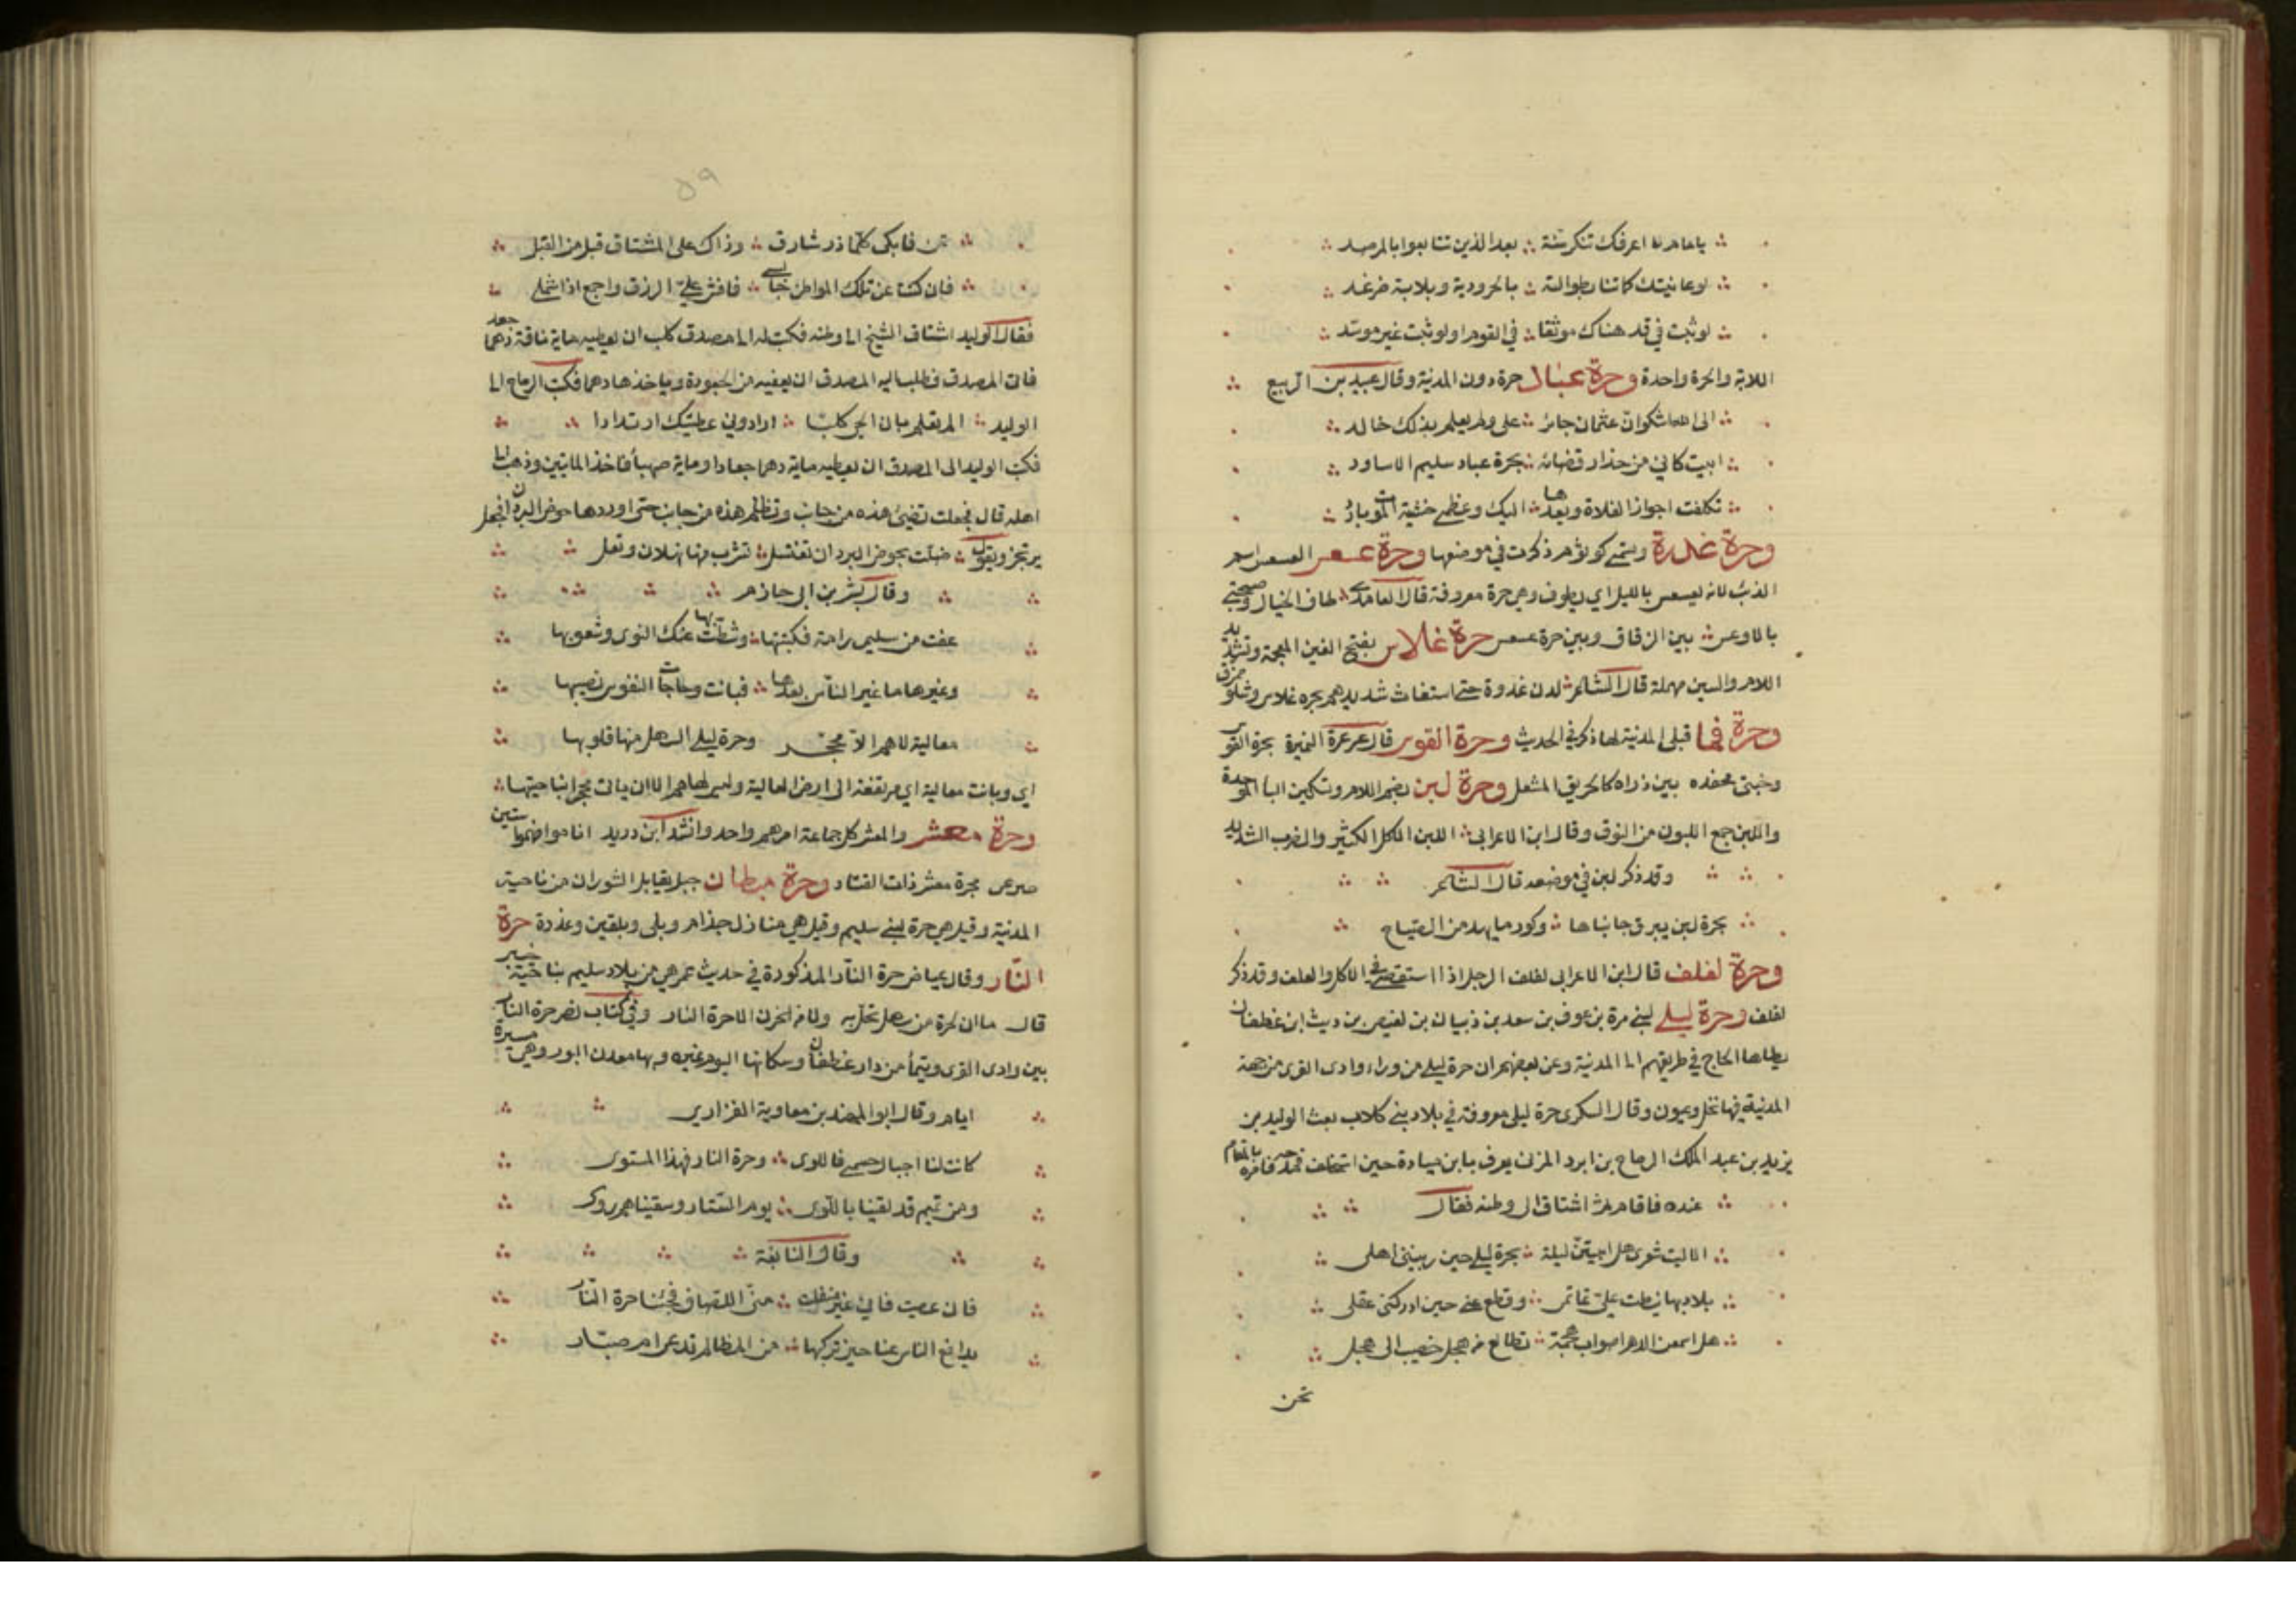 يا عام لا اعرفك تنكر سنة ∴ بعد الذين تتابعوا بالمرصد
لو عاينتك كاتنا بطوالة ∴ بالحرورية وبلابة ضرغد
لو ثبت في قد هناك موثقا ∴ في القوم او لو ثبت غير موسد
اللابة والحرة واحدة وحرة عباد حرة دون المدينة وقال عبيد بن الربيع
الى الله اشكوان عثمان جائر ∴ على ولم يعلم بذلك خالد
ابيت كاني من حذار قضائه ∴ بحرة عباد سليم الاساود
تكلفت اجواز الفلاة وبعدها ∴ اليك وعظمي خشية الموت بارد
وحرة عذرة وتسمى كوثوم ذكرت في موضعها وحرة عسعس العسعس اسم
الذئب لانه يعسعس بالليل اي يطوف وهي حرة معروفة قال العامدي طاف الخيال وصحبتي
بالاوعس ∴ بين الزقاق وبين حرة عسعس حرة غلاس بفتح الغين المعجمة وتشديد
اللام والسين مهملة قال الشاعر لدن غدوة حتى استغاث شديدهم بحره غلاس وشلو ممزق
وحرة قبا قبلي المدينة لها ذكر في الحديث وحرة القوس قال عرعرة النميرة بحرة القوس
وخبتي محفده بين ذراه كالحريق المشعل وحرة لبن بضم اللام وتسكين البا الموحدة
واللبن جمع اللبون من النوق وقال ابن الاعرابي اللبن الاكل الكثير والضرب الشديد
وقد ذكر لبن في موضعه قال الشاعر
بحرة لبن يبرق جانباها ∴ وكود ما يهد من الصياح
وحرة لفلف قال ابن الاعرابي لفلف الرجل اذا استقصى في الاكل والعلف وقد ذكر
لفلف وحرة ليلى لبني مرة بن عوف بن سعد بن ذبيان بن بغيض بن ريث ابن غطفان
يطاها الحاج في طريقهم الى المدينة وعن بعضهم ان حرة ليلى من وراء وادى القرى من جهة
المدينة فيها نخل وعيون وقال السكرى حرة ليلى معروفة في بلاد بني كلاب بعث الوليد بن
يزيد بن عبد الملك الرماح بن ابرد المزنى يعرف بابن ميادة حين استخلف فمدحه فامره بالمقام
عنده فاقام ثم اشتاق الى وطنه فقال
الا ليت شعرى هل ابيتن ليلة ∴ بحرة ليلى حين ربيتني اهلى
بلاد بها نيطت على تمائمي ∴ وقطع عني حين ادركني عقلى
هل اسمعن الدهر اصوات هجمة ∴ تطالع من هجل خصيب الى هجل
نحن
٥٩
تحن فابكى كلما ذر شارق ∴ وذاك على المشتاق قبل من القبل
فان كنت عن تلك المواطن حابسي ∴ فافش على الرزق واجمع اذا شملى
فقال الوليد اشتاق الشيخ الى وطنه فكتب له الى مصدق كلب ان يعطيه ماية ناقة دهما جعد
فاتى المصدق فطلب اليه المصدق ان يعفيه من الجعودة وياخذها دهما فكتب الرماح الى
الوليد ∴ الم تعلم بان الحى كلبا ∴ ارادوني عطيتك ارتدادا
فكتب الوليد الى المصدق ان يعطيه ماية دهما جعادا وماية صهبا فاخذ الماتين وذهب الى
اهله قال فجعلت تضيئ هذه من جانب وتظلم هذه من جانب حتى اوردها حوض البردان فجعل
يرتجز ويقول ∴ ظلت بحوض البردان تغتسل ∴ تشرب منها نهلان وتعل
وقال بشر بن ابى حازم
عفت من سليمى رامة فكثيبها ∴ وشطت بها عنك النوى وشعوبها
وغيرها ما غير الناس بعدها ∴ فبانت وحاجات النفوس نصيبها
معالية لا هم الا محجر وحرة ليلى السهل منها قلوبها
اى وبانت معالية اى مرتفعة الى ارض العالية وليس لها هم الا ان ياتى محجر ابناحيتها
وحرة معشر والمعشر كل جماعة امرهم واحد وانشد ابن دريد اناموا منهم ستين
صرعى بحرة معشر ذات القتاد وحرة ميطان جبل يقابل الشوران من ناحية
المدينة وقيل هي حرة لبني سليم وقيل هي منازل جذام وبلى وبلقين وعذرة حرة
النار وقال عياض حرة النار المذكورة في حديث عمر هي من بلاد سليم بناحية خيبر
قال ما ان لمرة من سهل تحل به ولا من الحزن الا حرة النار وفي كتاب نصر حرة النار
بين وادى القرى وتيمأ من دار غطفان وسكانها اليوم عنيزه وبها معدن البورق وهي مسيرة
ايام وقال ابو المهند بن معاوية الفزارى
كانت لنا اجبال حسمى فاللوى ∴ وحرة النار فهذا المستوى
ومن تميم قد لقينا باللوى ∴ يوم النسار وسقيناهم روى
وقال النابغة
فان عصيت فانى غير منفلت ∴ منى اللصاف فجنبا حرة النار
يدافع الناس عنا حين نركبها ∴ من المظالم تدعى ام صبار